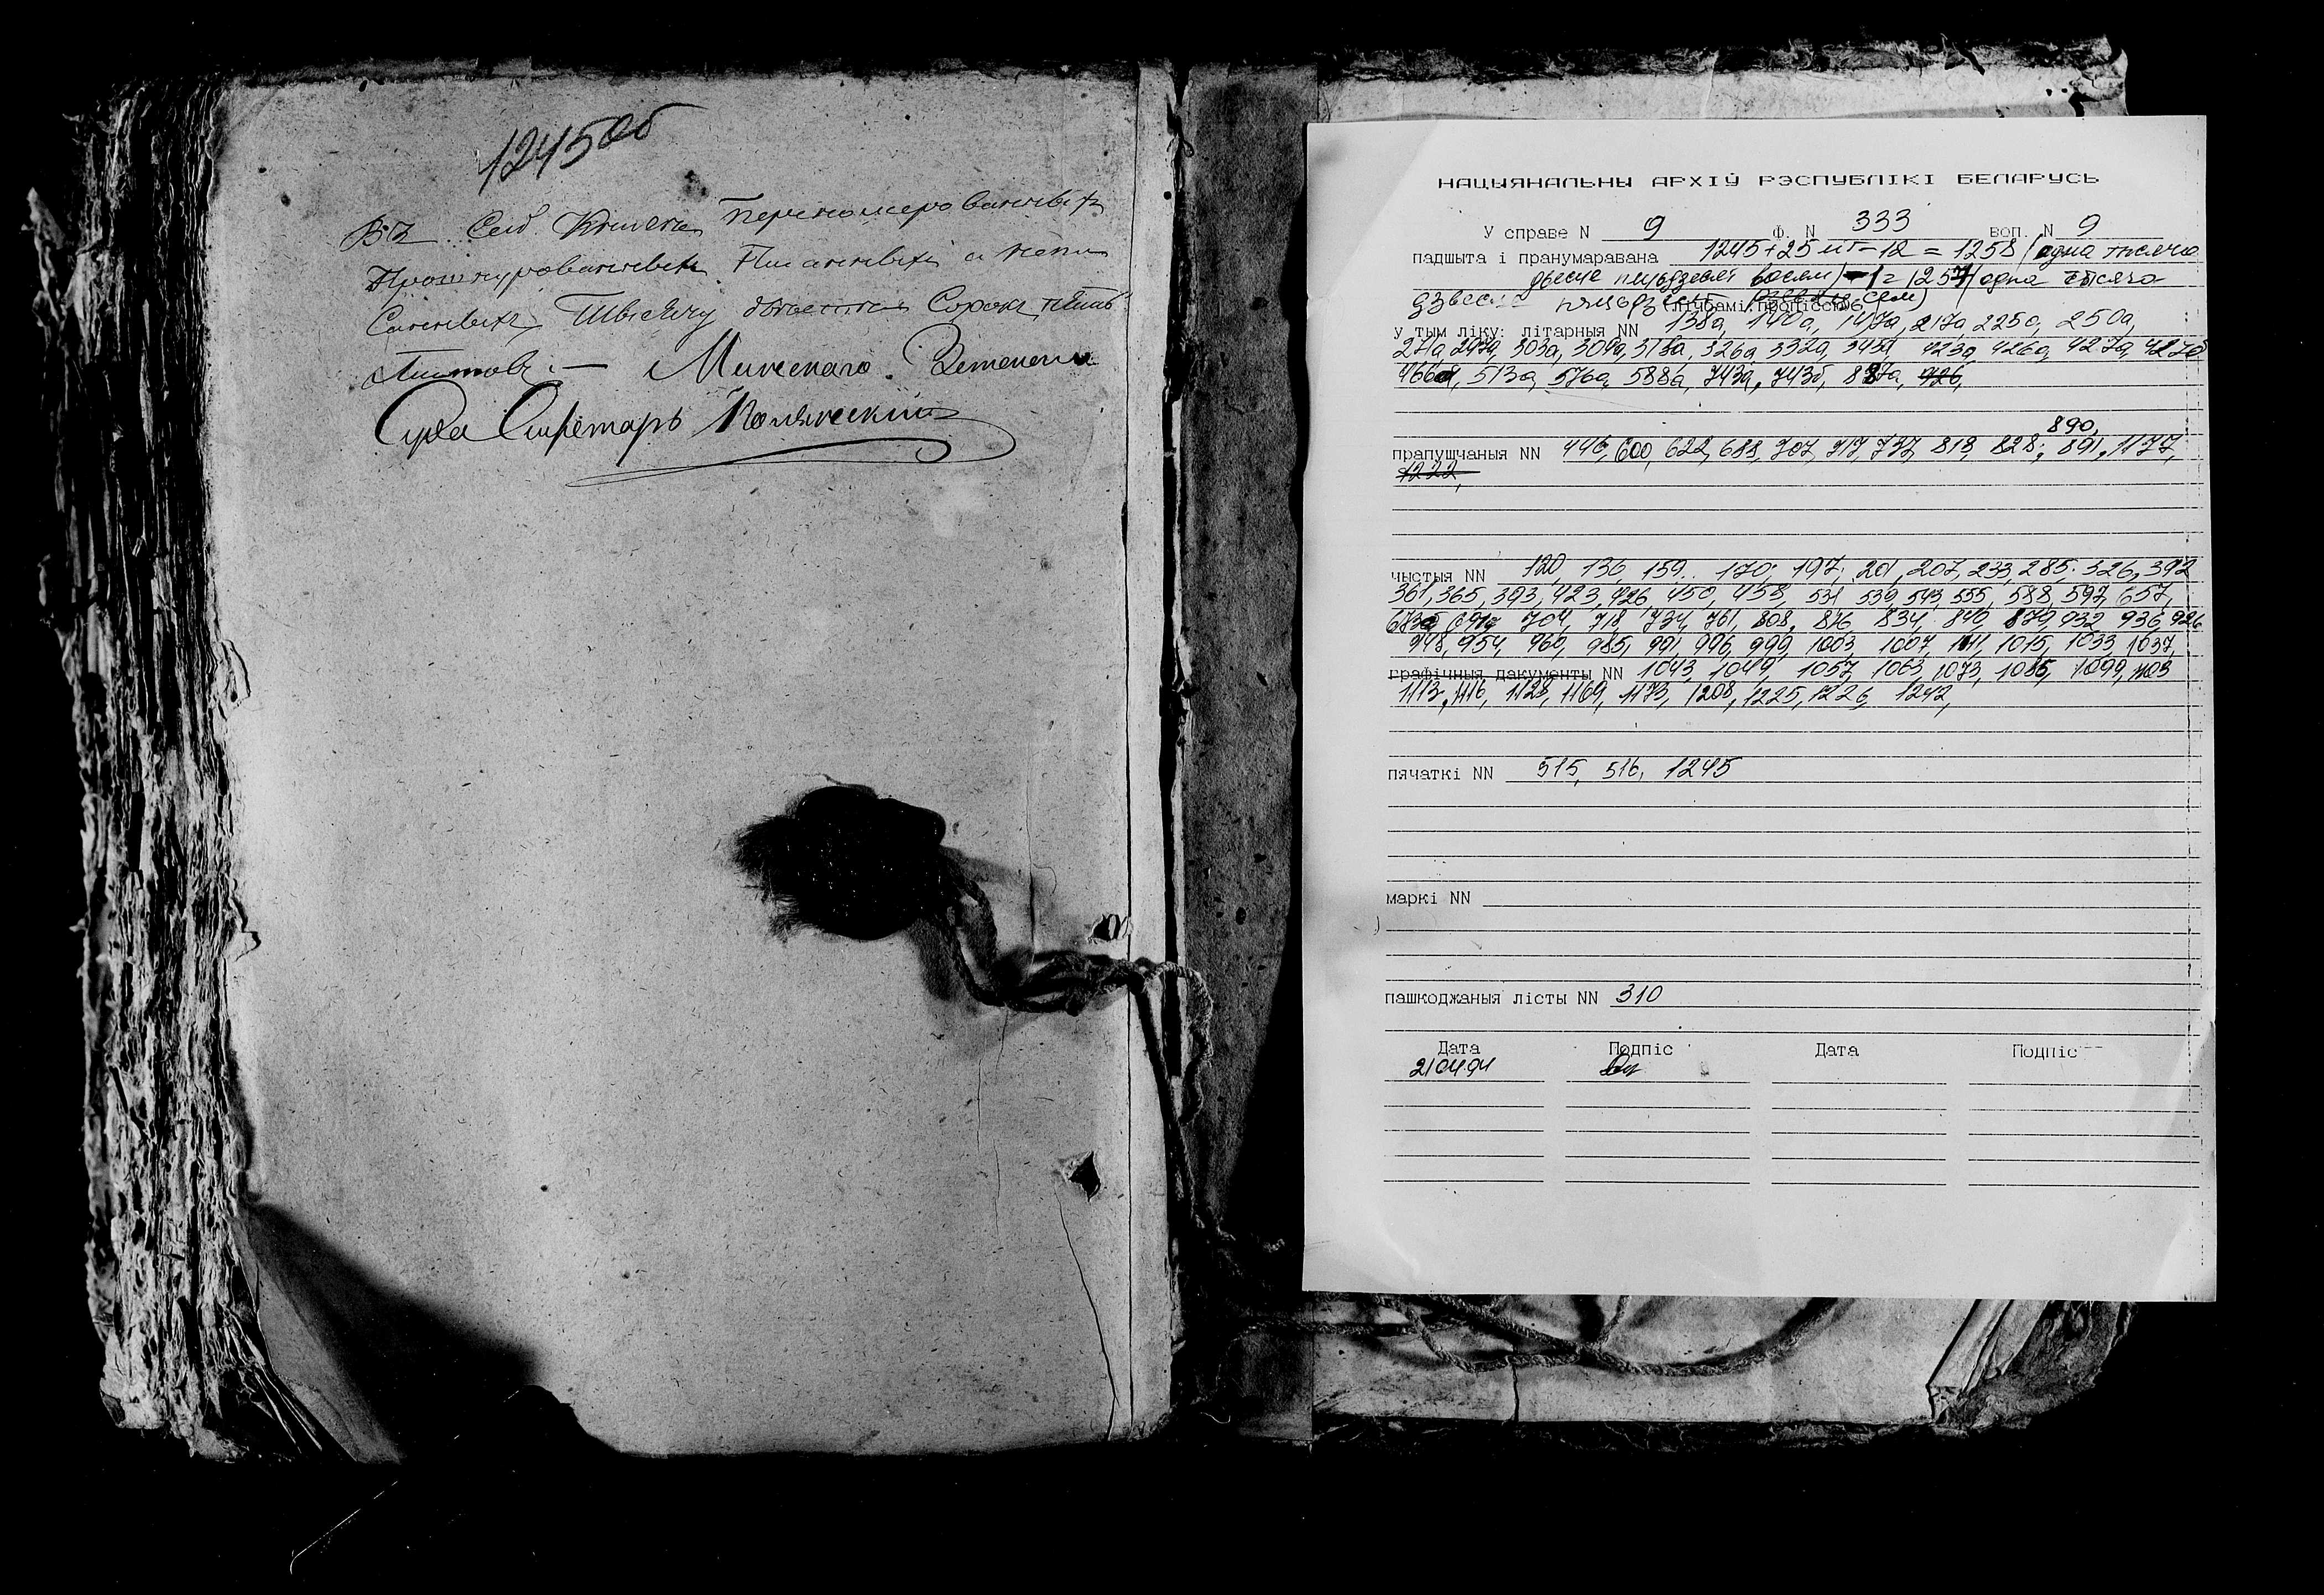 1245об
Въ Сей Книге Перенумерованныхъ
Прошнурованныхъ Писанныхъ и непи
санныхъ Тысячу двести Сорокъ пять
листовъ. — Минскаго Земскаго
Суда Секретарь
НАЦЫЯНАЛЬНЫ АРХІЎ РЭСПУБЛІКІ БЕЛАРУСЬ
У справе N 9 Ф. N 333 воп. N 9
падшыта і пранумаравана 1245+25 лит-12 = 1258 (одна тысяча
двести пятьдзесят восем) -1 = 1257 (одна тысяча
дзвесце пяцьдзесят сем)
(лічбамі, пропіссю)
у тым ліку: літарныя NN 138а, 140а, 147а, 217а, 225а, 250а,
271а, 297а, 303а, 309а, 318а, 326а, 332а, 345а, 423а, 426а, 427а, 427б
466а, 513а, 576а, 588а, 743а, 743б, 887а, 926,
890,
прапушчаныя NN 446, 600, 622, 688, 707, 717, 737, 818, 828, 891, 1177,
1222,
чыстыя NN 120, 136, 159, 170, 197, 201, 207, 233, 285, 326, 392
361, 365, 393, 423, 426, 450, 458, 531, 539, 543, 555, 588, 597, 657,
673а, 691, 704, 718, 734, 761, 808, 816, 834, 840, 879, 932, 936, 926
948, 954, 960, 985, 991, 996, 999, 1003, 1007, 1011, 1015, 1033, 1037,
графічныя дакументы NN 1043, 1049, 1057, 1063, 1073, 1085, 1099, 1103
1113, 1116, 1128, 1169, 1173, 1208, 1225, 1226, 1242,
пячаткі NN 515, 516, 1245
маркі NN
пашкоджаныя лісты NN 310
Дата Подпіс Дата Подпіс
21 04 94